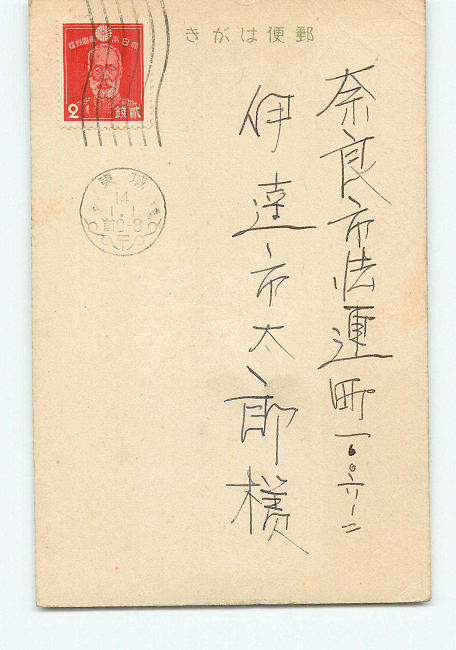 郵便はがき
大日本帝國郵便
2
貳錢
城東
14
1.1
前0-8
奈良市法蓮町一六〇六ー二
伊達市太郎様